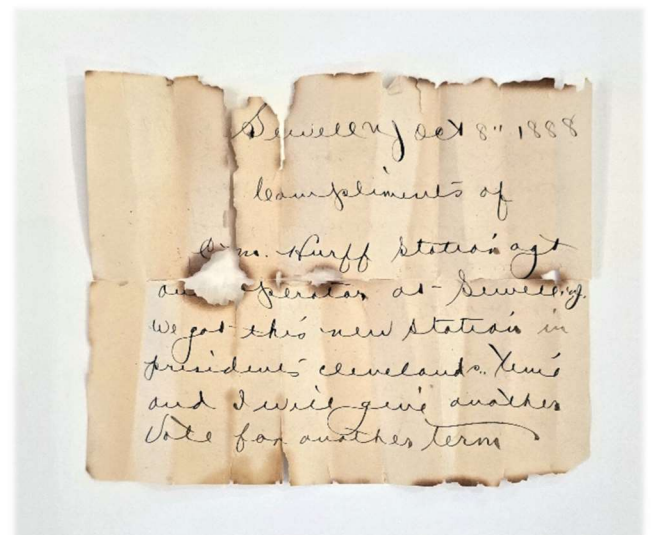 Sewell NJ Oct 8" 1888
Compliments of
m. Hurff Station agt
and operator at Sewell nj.
We got this new Station in
presidents clevelands.. Time
and I will give another
Vote for another term